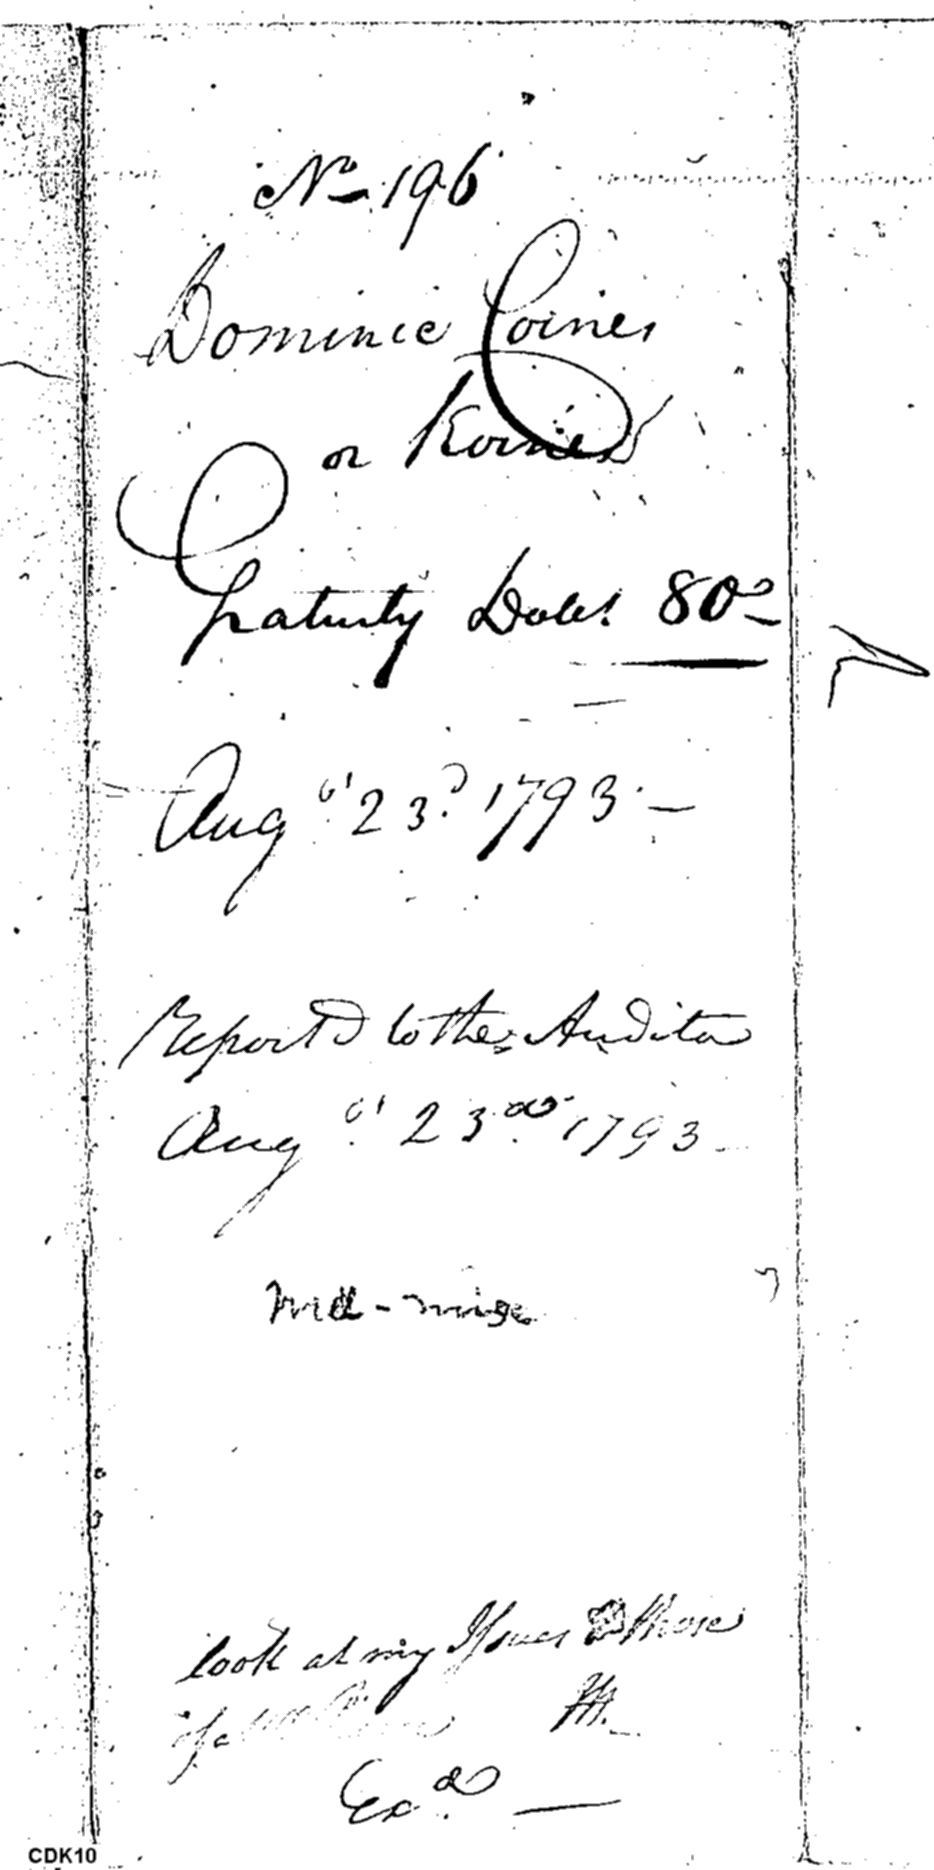 No 196
Dominic Coines
or Koines
Gratuity Dolls. 80
Augt. 23d. 1793.
Reportd to the Auditor
Augt. 23d. 1793
look at my Issues & those
of
Exd.
CDK10